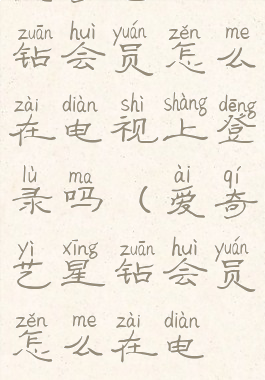 zuān huì yuán zěn me
钻会员怎么
zài diàn shì shàng dēng
在电视上登
lù ma ài qí
录吗（爱奇
yì xīng zuān huì yuán
艺星钻会员
zěn me zài diàn
怎么在电